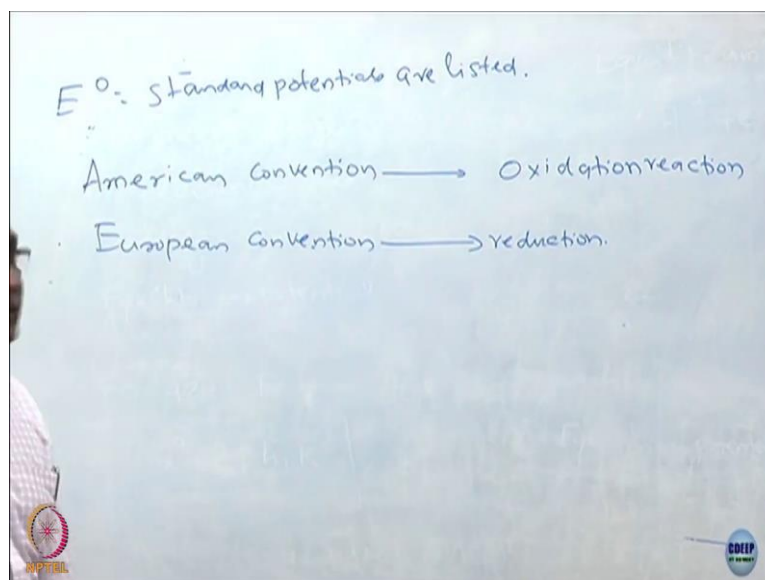 E° = Standard potentials are listed.
American Convention → Oxidation reaction
European Convention → reduction.
NPTEL
CDEEP